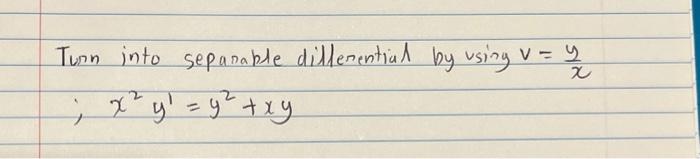 Turn into separable differential by using v = y/x
; x² y' = y² + xy